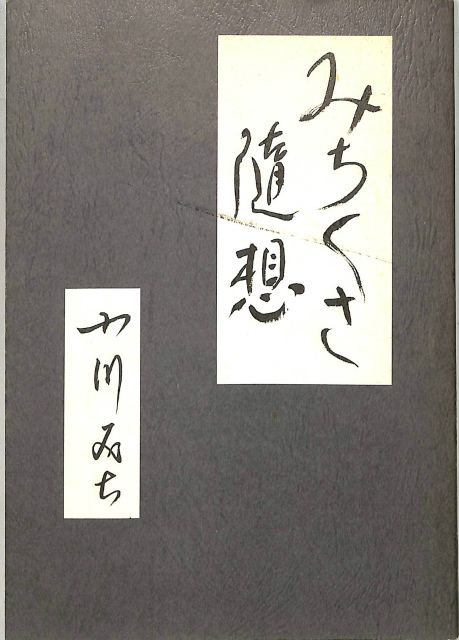 みちくさ
随想
小川みち